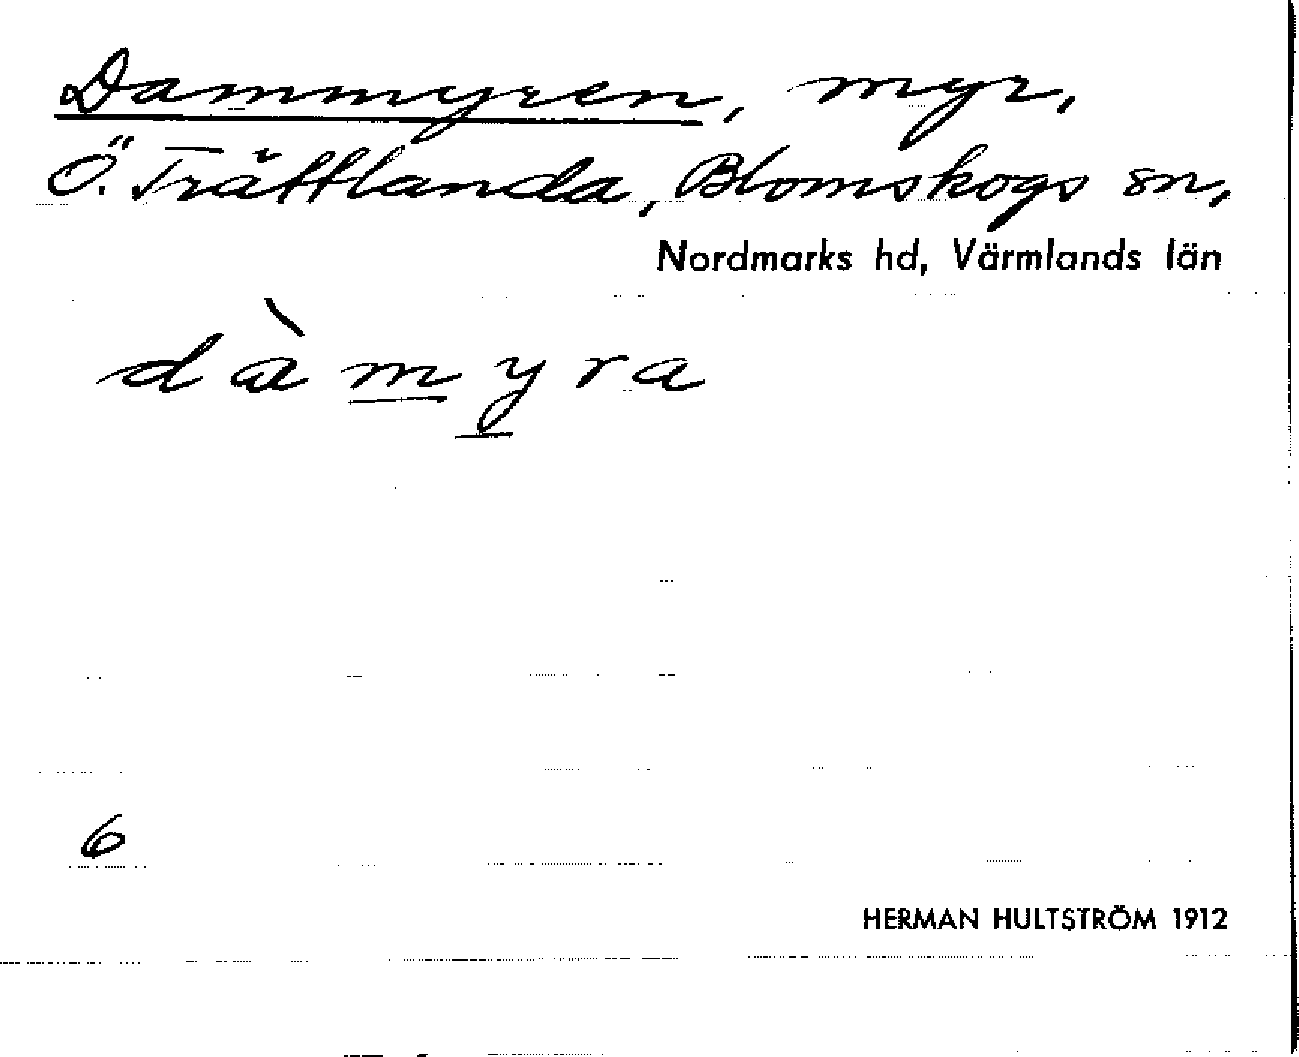 Dammyren, myr,
Ö. Trättlanda, Blomskogs sn,
Nordmarks hd, Värmlands län
dàmyra
6
HERMAN HULTSTRÖM 1912